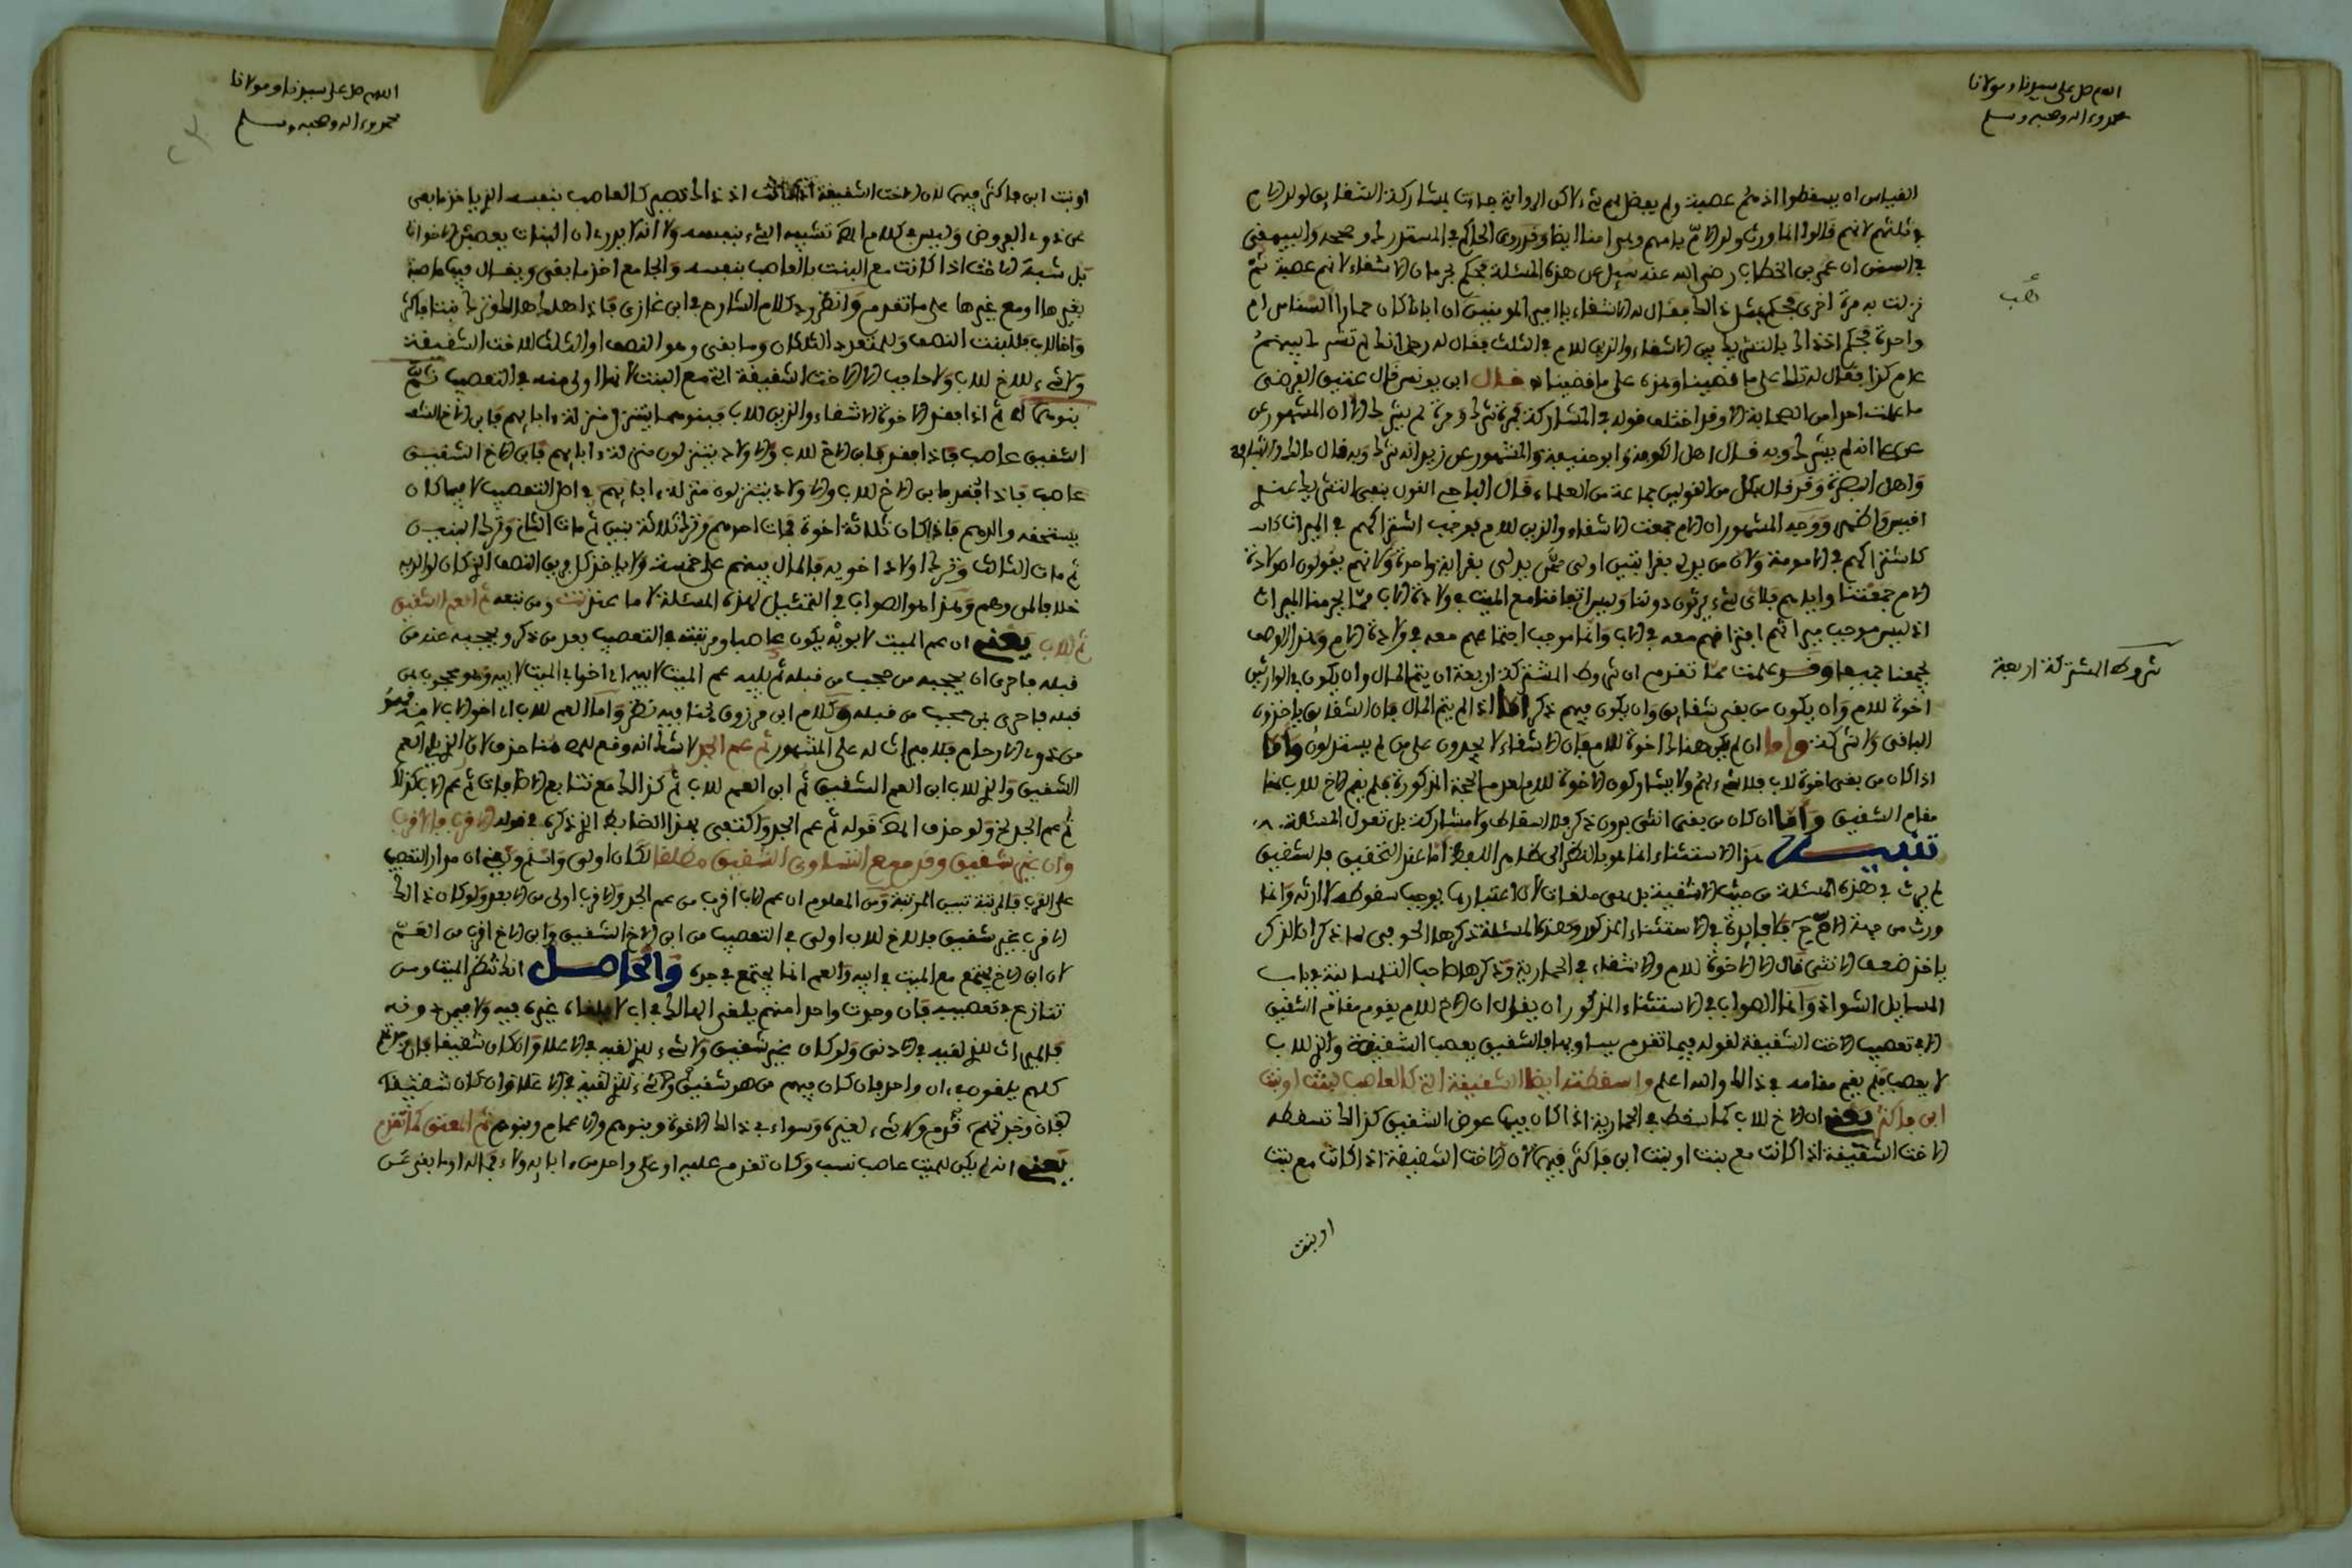 اللهم صل على سيدنا ومولانا
محمد وءاله وصحبه وسلم
القياس ان يسقطوا اذ هم عصبة ولم يفضل لهم شيء لاكن الرواية جاءت بمشاركة الشقايق لولد الام
في ثلثهم لانهم قالوا انما ورث ولد الام بامهم وهي امنا ايضا وقد روى الحاكم في المستدرك وصححه والبيهقي
في السنن ان عمر بن الخطاب رضي الله عنه سيل عن هذه المسئلة فحكم بحرمان الاشقاء لانهم عصبة ثم
نزلت به مرة اخرى فحكم بمثل ذالك فقال له الاشقاء يا امير المومنين ان ابانا كان حمارا السنا من ام
واحدة فحكم اذ ذاك بالتشريك بين الاشقاء والذين للام في الثلث فقال له رجل انك لم تشرك بينهم
عام كذا فقال له تلك على ما قضينا وهذه على ما قضينا قال ابن يونس قال عتيق الفرضي
ما علمت احدا من الصحابة الا وقد اختلف قوله في المشاركة فمرة شرك ومرة لم يشرك الا ان المشهور عن
علي انه لم يشرك وبه قال اهل الكوفة وابو حنيفة والمشهور عن زيد انه شرك وبه قال مالك والشافعي
واهل البصرة وقد قال بكل من القولين جماعة من العلماء قال الباجي القول بنفي التشريك عندي
اقيس واظهر ووجه المشهور ان الام جمعت الاشقاء والذين للام فوجب اشتراكهم في الميراث
كاشتراكهم في الامومة ولان من يدلي بقرابتين اولى ممن يدلي بقرابة واحدة ولانهم يقولون اولاد
الام جمعتنا واياهم فلاي شيء يرثون دوننا وليس اجتماعنا مع الميت في ولادة الاب مما يحرمنا الميراث
اذ ليس موجب ميراثهم افتراقهم معه في الاب وانما موجب اجتماعهم معه في ولادة الام وهذا الوصف
يجمعنا جميعا وقد علمت مما تقدم ان شروط المشتركة اربعة ان يتم المال وان يكون في الوارثين
اخوة للام وان يكون من بقي شقايق وان يكون فيهم ذكر اما اذا لم يتم المال فان الشقايق ياخذون
الباقي ولا شركة واما ان لم يكن هناك اخوة للام فان الاشقاء لا يجدون على من لم يستدلون واما
اذا كان من بقي اخوة لاب فلا شيء لهم ولا يشاركون الاخوة للام لعدم الحجة المذكورة فلم يقم الاخ للاب هنا
مقام الشقيق واما ان كان من بقي انثى بدون ذكر فلا اسقاط ولا مشاركة بل تعول المسئلة
تنبيه هذا الاستثناء انما هو بالنظر الى ظاهر اللفظ اما عند التحقيق فالشقيق
لم يرث في هذه المسئلة من حيث الاشقية بل هي ملغاة لان اعتبارها يوجب سقوطه لا ارثه وانما
ورث من جهة الام فلا فايدة في الاستثناء المذكور وهذه المسئلة ذكرها الحوفي لما ذكر ان الذكر
ياخذ ضعف الانثى قال الا الاخوة للام والاشقاء في الحمارية وذكرها صاحب التلمسانية في باب
المسايل الشواذ وانما الصواب في الاستثناء المذكور ان يقول ان الاخ للام يقوم مقام الشقيق
الا في تعصيب الاخت الشقيقة لقوله فيما تقدم يساويها فالشقيق يعصب الشقيقة والذي للاب
لا يعصب فلم يقم مقامه في ذالك والله اعلم واسقطته ايضا الشقيقة التي كالعاصب لبنت او بنت
ابن فاكثر يعني ان الاخ للاب كما سقط في الحمارية اذا كان فيها عوض الشقيق كذالك تسقطه
الاخت الشقيقة اذا كانت مع بنت او بنت ابن فاكثر فيهما لان الاخت الشقيقة اذا كانت مع بنت
او بنت
شروط المشتركة اربعة
اللهم صل على سيدنا ومولانا
محمد وءاله وصحبه وسلم
او بنت ابن فاكثر فيهما لان الاخت الشقيقة اذا كانت اذ ذاك تصير كالعاصب بنفسه الذي ياخذ ما بقي
عن ذوي الفروض وليس في كلام المص تشبيه الشيء بنفسه ولا انه لا يدري ان البنات يعصبن الاخوات
بل شبه الاخت اذا كانت مع البنت بالعاصب بنفسه والجامع اخذ ما بقي ويقال فيها عاصبة
بغيرها او مع غيرها على ما تقدم وانظر رد كلام الشارح في ابن غازي فاذا هلك هالك وترك بنتا فاكثر
واخا لاب فللبنت النصف وللمتعدد الثلثان وما بقي وهو النصف او الثلث للاخت الشقيقة
ولا شيء للاخ للاب ولا حاجب الا الاخت الشقيقة التي مع البنت لانها اولى منه في التعصيب ثم
بنوهما ثم اذا فقد الاخوة الاشقاء والذين للاب فبنوهما يتنزل منزلة ءابايهم فابن الاخ
الشقيق عاصب فاذا فقد فابن الاخ للاب والاولاد يتنزلون منزلة ءابايهم فابن الاخ الشقيق
عاصب فاذا فقد فابن الاخ للاب والاولاد يتنزلون منزلة ءابايهم في اصل التعصيب لا فيما كان
يستحقه والدهم فاذا كان ثلاثة اخوة فمات احدهم وترك ثلاثة بنين ثم مات الثاني وترك ابنين
ثم مات الثالث وترك اولاد اخويه فالمال بينهم على خمسة ولا ياخذ كل فريق النصف الذي كان لوالده
خلافا لمن وهم وهذا هو الصواب في التمثيل لهذه المسئلة لا ما عند تت ومن تبعه ثم العم الشقيق
ثم للاب يعني ان عم الميت لابويه يكون عاصبا ومرتبته في التعصيب بعد من ذكر ويحجبه عنه من
قبله فاحرى ان يحجبه من حجب من قبله ثم يليه عم الميت لابيه اي اخو ابي الميت لابيه وهو محجوب بمن
قبله فاحرى بمن حجب من قبله وكلام ابن مرزوق هنا فيه نظر واما العم للام اي اخو الاب لامه فهو
من ذوي الارحام فلا ميراث له على المشهور ثم عم الجد لا شك انه وقع للمص هنا حذف لان الذي يلي العم
الشقيق والذي للاب ابن العم الشقيق ثم ابن العم للاب ثم كذالك مع تتابع الاطراف ثم عم الاب كذالك
ثم عم الجد الخ ولو حذف المص قوله ثم عم الجد واكتفى بهذا الضابط الذي ذكره في قوله الاقرب فالاقرب
وان غير شقيق وقدم مع التساوي الشقيق مطلقا لكان اولى واسلم وكونه ان مدار التعصيب
على القرب فالمرتبة تبين المرتبة ومن المعلوم ان عم الاب اقرب من عم الجد والاقرب اولى من الابعد ولو كان ذالك
الاقرب غير شقيق فالاخ للاب اولى في التعصيب من ابن الاخ الشقيق وابن الاخ اقرب من العم
لان ابن الاخ يجتمع مع الميت في ابيه والعم انما يجتمع في جده والحاصل انك تنظر الميت ومن
تنازع في تعصيبه فان وجدت واحدا منهم يلقى الهالك في اب لا يلقاه غيره فيه ولا فيمن دونه
فالميراث للذي لقيه في الادنى ولو كان غير شقيق ولا شيء للذي لقيه في الاعلا وان كان شقيقا فان وجدتهم
كلهم يلقون في اب واحد فان كان فيهم من هو شقيق ولا شيء للذي لقيه في الاعلا وان كان شقيقا
فان وجدتهم قدم ولا شيء لغيره وسواء في ذالك الاخوة وبنوهم والاعمام وبنوهم ثم المعتق كما تقدم
يعني ان لم يكن للميت عاصب نسب وكان تقدم عليه او على واحد من ءابايه ولاء فماله او ما بقي عن